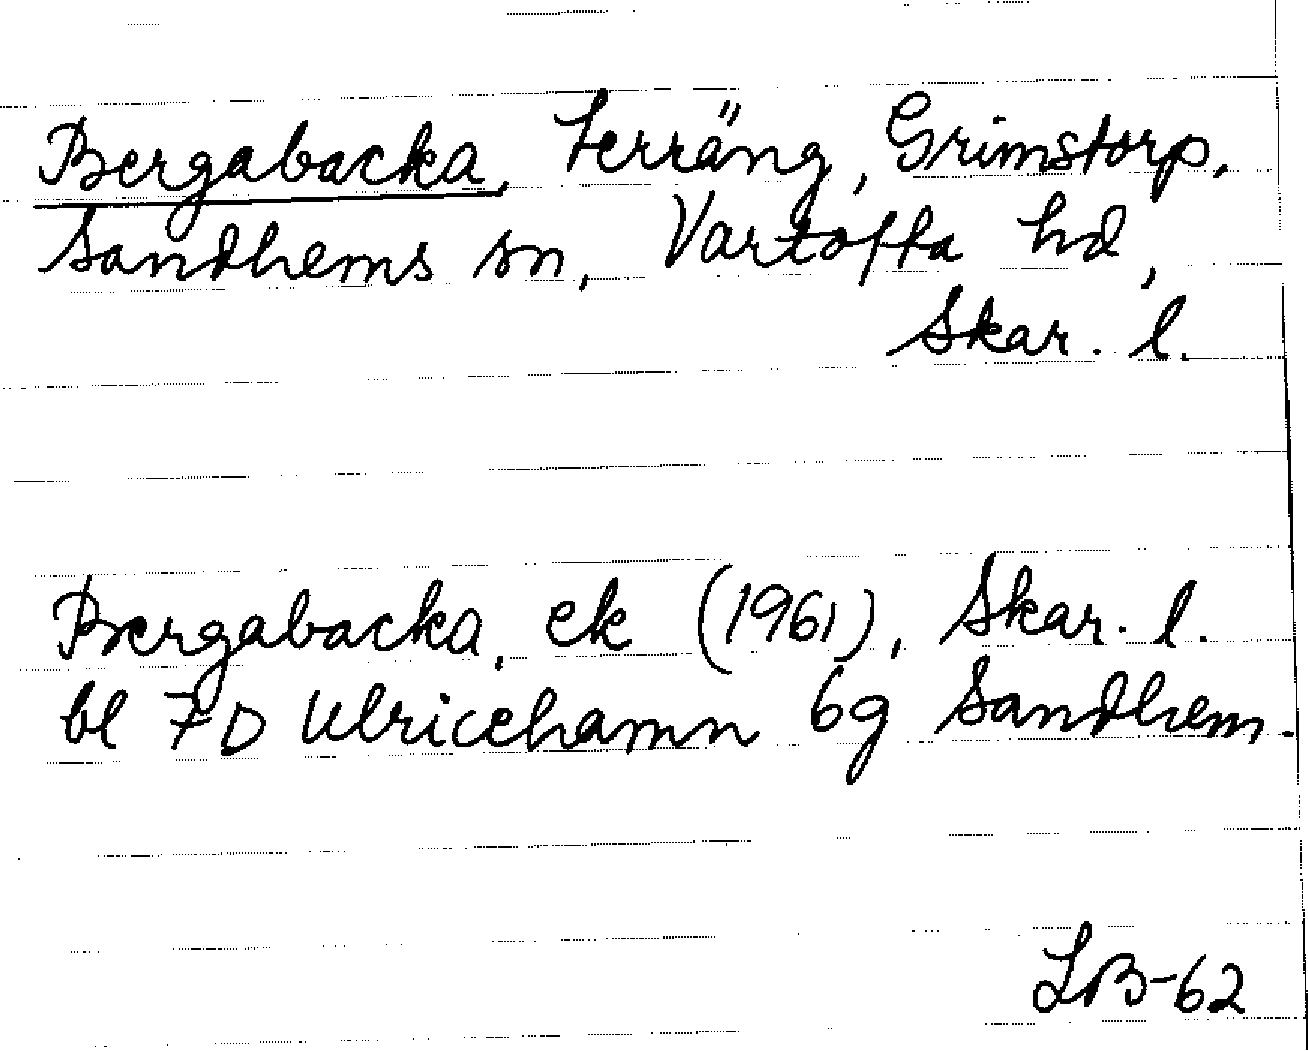 Bergabacka, Terräng, Grimstorp,
Sandhems sn, Vartofta hd,
Skar. l.
Bergabacka, ek (1961), Skar. l.
bl 7D Ulricehamn 6g Sandhem.
LB-62